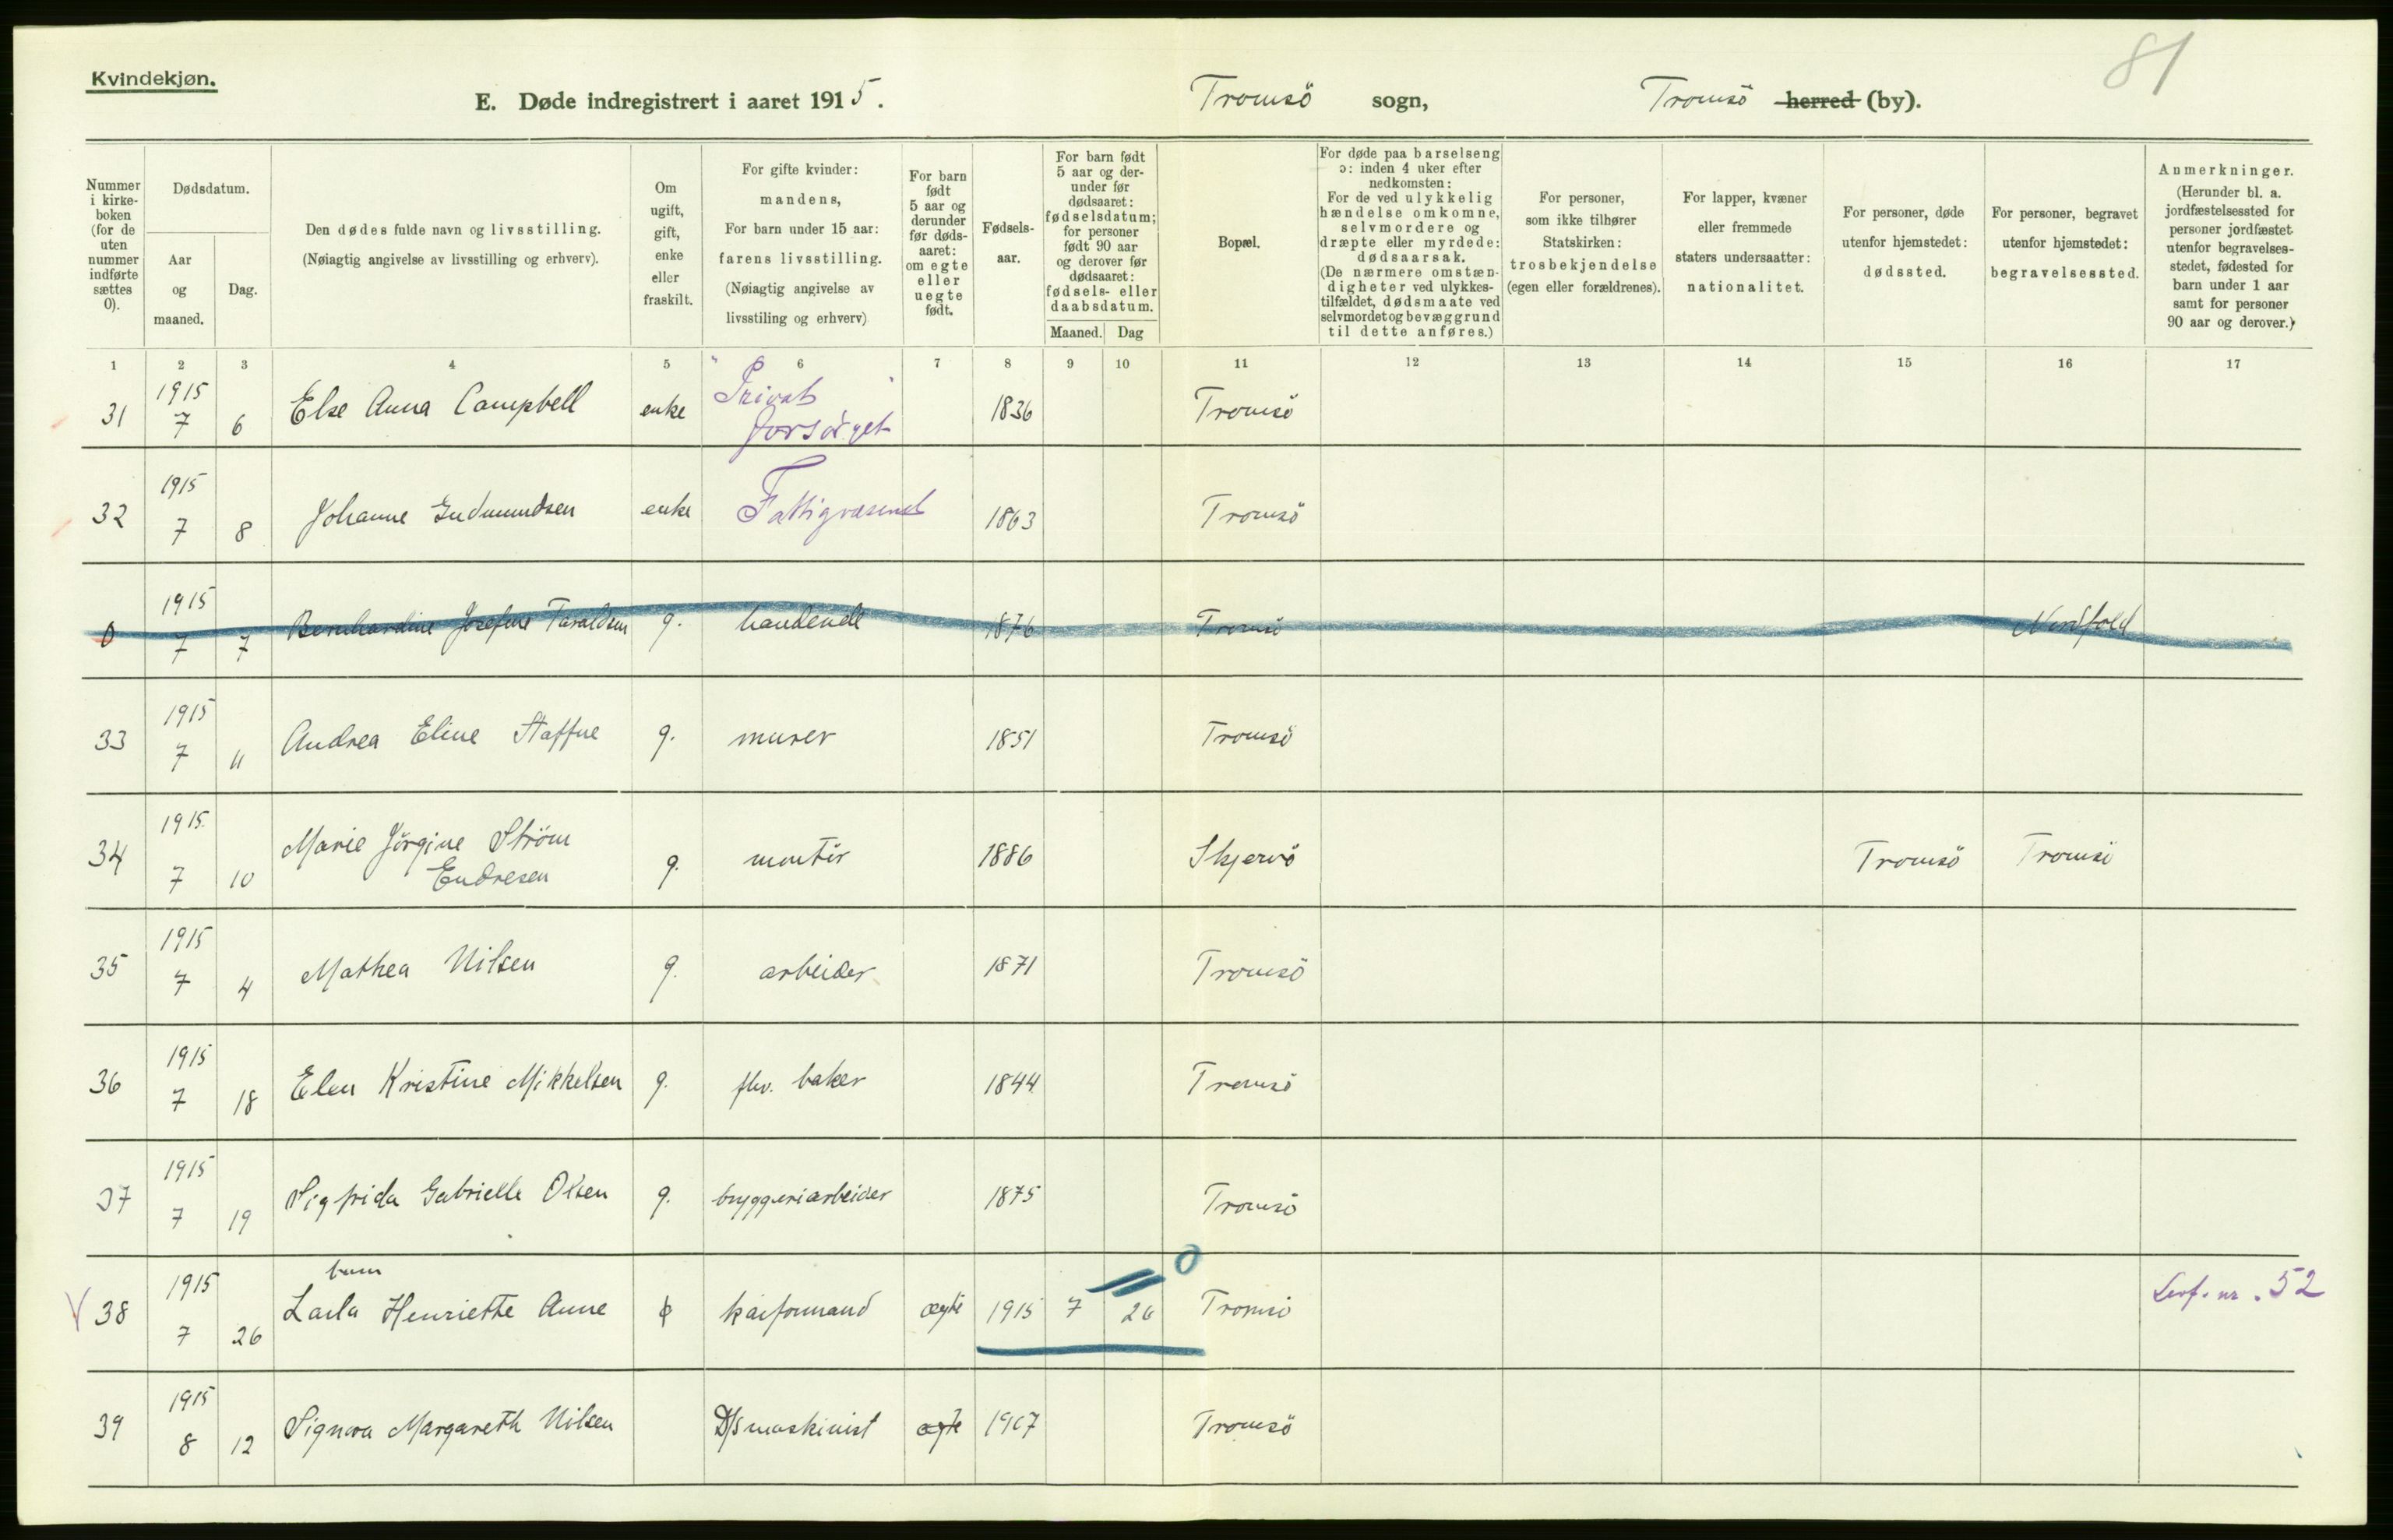 Kvindekjøn.
81
E. Døde indregistrert i aaret 1915.
Tromsö sogn,
Tromsö herred (by).
Nummer i kirke-boken (for de uten nummer indførte sættes 0).
Dødsdatum.
Aar og maaned.
Dag.
Den dødes fulde navn og livsstilling.
(Nøiagtig angivelse av livsstilling og erhverv).
Om ugift, gift, enke eller fraskilt.
For gifte kvinder: mandens,
For barn under 15 aar: farens livsstilling.
(Nøiagtig angivelse av livsstiling og erhverv)
For barn født 5 aar og derunder før døds-aaret: om egte eller uegte født.
Fødsels-aar.
For barn født 5 aar og der-under før dødsaaret: fødselsdatum; for personer født 90 aar og derover før dødsaaret: fødsels- eller daabsdatum.
Maaned.
Dag
Bopæl.
For døde paa barselseng ɔ: inden 4 uker efter nedkomsten:
For de ved ulykkelig hændelse omkomne, selvmordere og dræpte eller myrdede: dødsaarsak.
(De nærmere omstæn-digheter ved ulykkes-tilfældet, dødsmaate ved selvmordet og bevæggrund til dette anføres.)
For personer, som ikke tilhører Statskirken: trosbekjendelse (egen eller forældrenes).
For lapper, kvæner eller fremmede staters undersaatter: nationalitet.
For personer, døde utenfor hjemstedet: dødssted.
For personer, begravet utenfor hjemstedet: begravelsessted.
Anmerkninger.
(Herunder bl. a. jordfæstelsessted for personer jordfæstet utenfor begravelses-stedet, fødested for barn under 1 aar samt for personer 90 aar og derover.)
1 2 3 4 5 6 7 8 9 10 11 12 13 14 15 16 17
31 1915 7 6 Else Anna Campbell enke "Privat forsörget" 1836 Tromsö
32 1915 7 8 Johanne Gudmundsen enke Fattigvæsenet 1863 Tromsö
0 1915 7 7 Bernhardine Josefine Taraldsen g. handende 1876 Tromsö Nordfold
33 1915 7 11 Andrea Eline Staffne g. murer 1851 Tromsö
34 1915 7 10 Marie Jörgine Ström
Endresen g. montör 1886 Skjervö Tromsö Tromsö
35 1915 7 4 Mathea Nilsen g. arbeider 1871 Tromsö
36 1915 7 18 Elen Kristine Mikkelsen g. fhv. baker 1844 Tromsö
37 1915 7 19 Sigfrida Gabrielle Olsen g. bryggeriarbeider 1875 Tromsö
38 1915 7 26 Laila Henriette Anne kaiformand ægte 1915 7 26 0 Tromsö Levf. nr. 52
39 1915 8 12 Signora Margareth Nilsen D/S maskinist ægte 1907 Tromsö